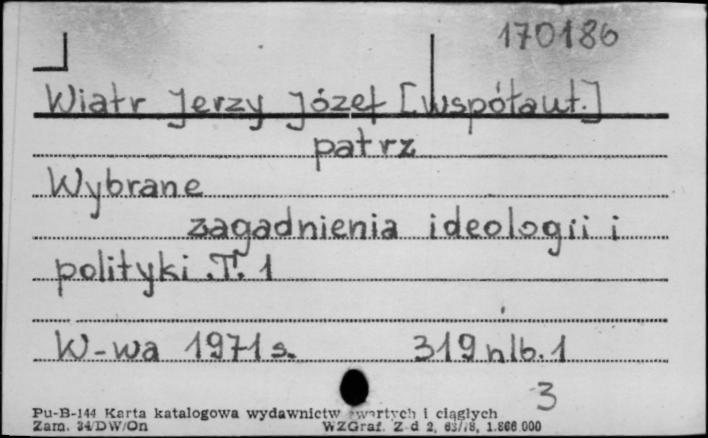 170186
Wiatr Jerzy Józef [współaut.]
patrz
Wybrane
zagadnienia ideologii i
polityki .T. 1
W-wa 1971 s. 319 nlb. 1
3
Pu-B-144 Karta katalogowa wydawnictw zwartych i ciągłych
Zam. 34/DW/On WZGraf. Z-d 2, 1.866.000